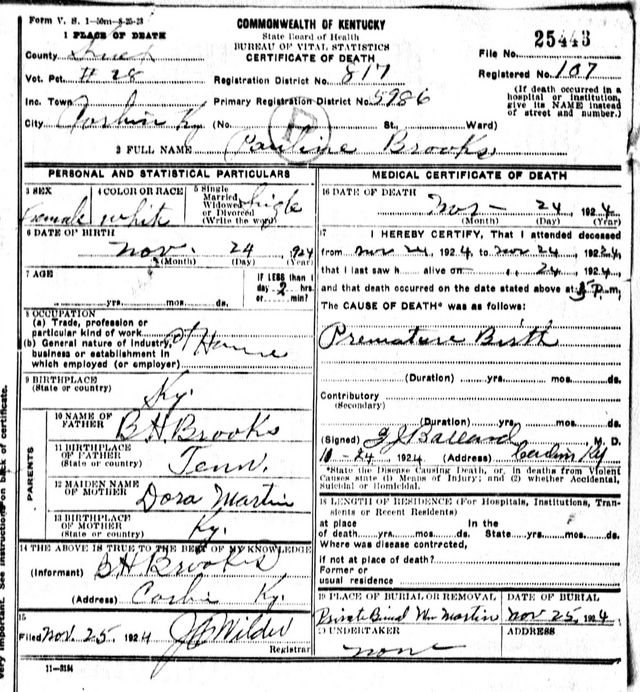 Form V. S. 1-50m-8-25-23
COMMONWEALTH OF KENTUCKY
State Board of Health
BUREAU OF VITAL STATISTICS
CERTIFICATE OF DEATH
1 PLACE OF DEATH
County
File No. 25443
Vot. Pct. # 28 Registration District No. 817 Registered No. 107
Inc. Town Primary Registration District No. 5986
(If death occurred in a hospital or institution, give its NAME instead of street and number.)
City Corbin Ky (No. St. Ward)
2 FULL NAME Pauline Brooks
PERSONAL AND STATISTICAL PARTICULARS
3 SEX Female
4 COLOR OR RACE white
5 Single Married Widowed or Divorced (Write the word) Single
6 DATE OF BIRTH
Nov. 24, 1924
(Month) (Day) (Year)
7 AGE
yrs. mos. ds.
IF LESS than 1 day 2 hrs. or min?
8 OCCUPATION
(a) Trade, profession or particular kind of work
(b) General nature of Industry, business or establishment in which employed (or employer) at Home
9 BIRTHPLACE
(State or country) Ky.
PARENTS
10 NAME OF FATHER B H Brooks
11 BIRTHPLACE OF FATHER (State or country) Tenn.
12 MAIDEN NAME OF MOTHER Dora Martin
13 BIRTHPLACE OF MOTHER (State or country) Ky.
14 THE ABOVE IS TRUE TO THE BEST OF MY KNOWLEDGE
(Informant) B H Brooks
(Address) Ky.
15
Filed Nov. 25, 1924 Wilder
Registrar
11-3184
MEDICAL CERTIFICATE OF DEATH
16 DATE OF DEATH
Nov - 24, 1924
(Month) (Day) (Year)
17 I HEREBY CERTIFY, That I attended deceased
from Nov 24, 1924, to Nov 24, 1924,
that I last saw h alive on 24, 1924,
and that death occurred on the date stated above at P.m.
The CAUSE OF DEATH* was as follows:
Premature Birth
(Duration) yrs. mos. ds.
Contributory
(Secondary)
(Duration) yrs. mos. ds.
(Signed) Ballard, M. D.
24 1924 (Address) Corbin Ky
*State the Disease Causing Death, or, in deaths from Violent
Causes state (1) Means of Injury; and (2) whether Accidental,
Suicidal or Homicidal.
18 LENGTH OF RESIDENCE (For Hospitals, Institutions, Transients or Recent Residents)
at place In the
of death yrs. mos. ds. State yrs. mos. ds.
Where was disease contrcted,
if not at place of death?
Former or
usual residence
19 PLACE OF BURIAL OR REMOVAL DATE OF BURIAL
Private Burial Wm Martin Nov 25, 1924
UNDERTAKER ADDRESS
none
very important. See instructions on back of certificate.